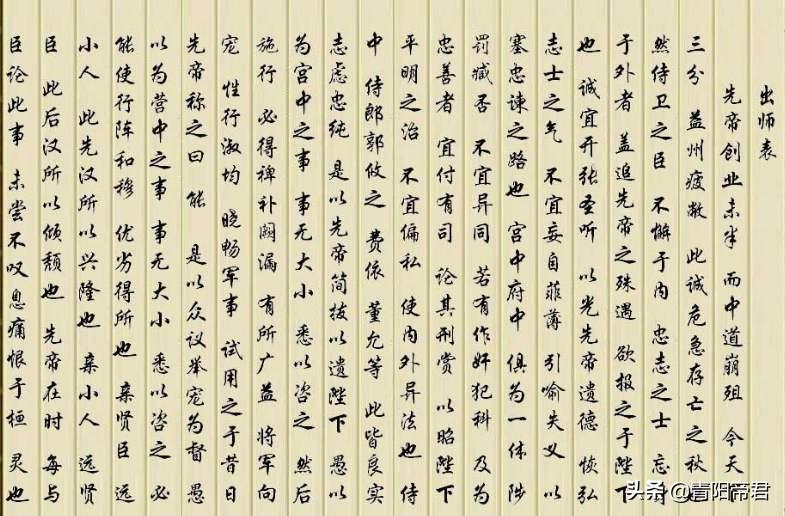 出师表
先帝创业未半 而中道崩殂 今天下
三分 益州疲敝 此诚危急存亡之秋也
然侍卫之臣 不懈于内 忠志之士 忘身
于外者 盖追先帝之殊遇 欲报之于陛下
也 诚宜开张圣听 以光先帝遗德 恢弘
志士之气 不宜妄自菲薄 引喻失义 以
塞忠谏之路也 宫中府中 俱为一体 陟
罚臧否 不宜异同 若有作奸犯科 及为
忠善者 宜付有司 论其刑赏 以昭陛下
平明之治 不宜偏私 使内外异法也 侍
中 侍郎郭攸之 费依 董允等 此皆良实
志虑忠纯 是以先帝简拔以遗陛下 愚以
为宫中之事 事无大小 悉以咨之 然后
施行 必得裨补阙漏 有所广益 将军向
宠 性行淑均 晓畅军事 试用之于昔日
先帝称之曰 能 是以众议举宠为督 愚
以为营中之事 事无大小 悉以咨之 必
能使行阵和穆 优劣得所也 亲贤臣 远
小人 此先汉所以兴隆也 亲小人 远贤
臣 此后汉所以倾颓也 先帝在时 每与
臣论此事 未尝不叹息痛恨于桓 灵也
头条 @青阳帝君